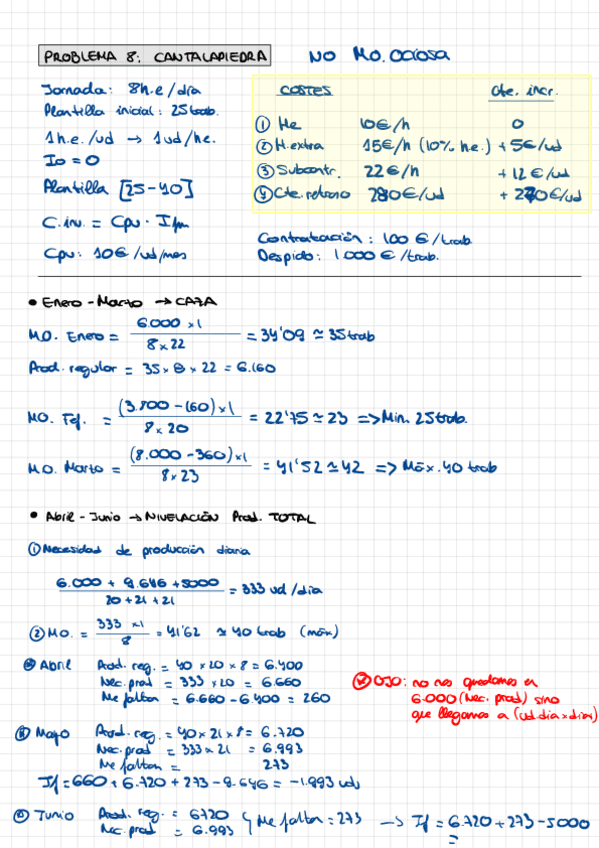 PROBLEMA 8: CANTALAPIEDRA NO MO. Ociosa
Jornada: 8h.e/día
Plantilla inicial: 25 trab.
1h.e./ud → 1ud/he.
Io = 0
Plantilla [25-40]
C.inv. = Cpu · Ifm
Cpu: 10€/ud/mes
COSTES Cte. incr.
① He 10€/h 0
② H.extra 15€/h (10% h.e.) + 5€/ud
③ Subcontr. 22€/h + 12€/ud
④ Cte.retraso 280€/ud + 270€/ud
Contratación: 100 €/trab.
Despido: 1.000 €/trab.
• Enero - Marzo → CAZA
MO. Enero = 6.000 x1 / 8x22 = 34'09 ≃ 35 trab
Prod. regular = 35 x 8 x 22 = 6.160
MO. Fef. = (3.800 - 160) x 1 / 8 x 20 = 22'75 ≃ 23 => Min. 25 trab.
MO. Marzo = (8.000 - 360) x 1 / 8x23 = 41'52 ≃ 42 => Máx. 40 trab
• Abril - Junio → NIVELACIÓN Prod. TOTAL
① Necesidad de producción diaria
6.000 + 9.646 + 5000 / 20 + 21 + 21 = 333 ud/día
② MO. = 333 x1 / 8 = 41'62 ≃ 40 trab (máx)
Abril Prod. reg. = 40 x 20 x 8 = 6.400
Nec. prod = 333 x 20 = 6.660
Me faltan = 6.660 - 6.400 = 260
OJO: no nos quedamos en
6.000 (Nec. prod) sino
que llegamos a (ud.día x días)
Mayo Prod. reg. = 40x 21 x 8 = 6.720
Nec. prod = 333 x 21 = 6.993
Me faltan = 273
If = 660 + 6.720 + 273 - 9.646 = -1.993 uds
Junio Prod. reg. = 6720
Nec. prod = 6.993 Me faltan = 273 → If = 6.720 + 273 - 5000
=